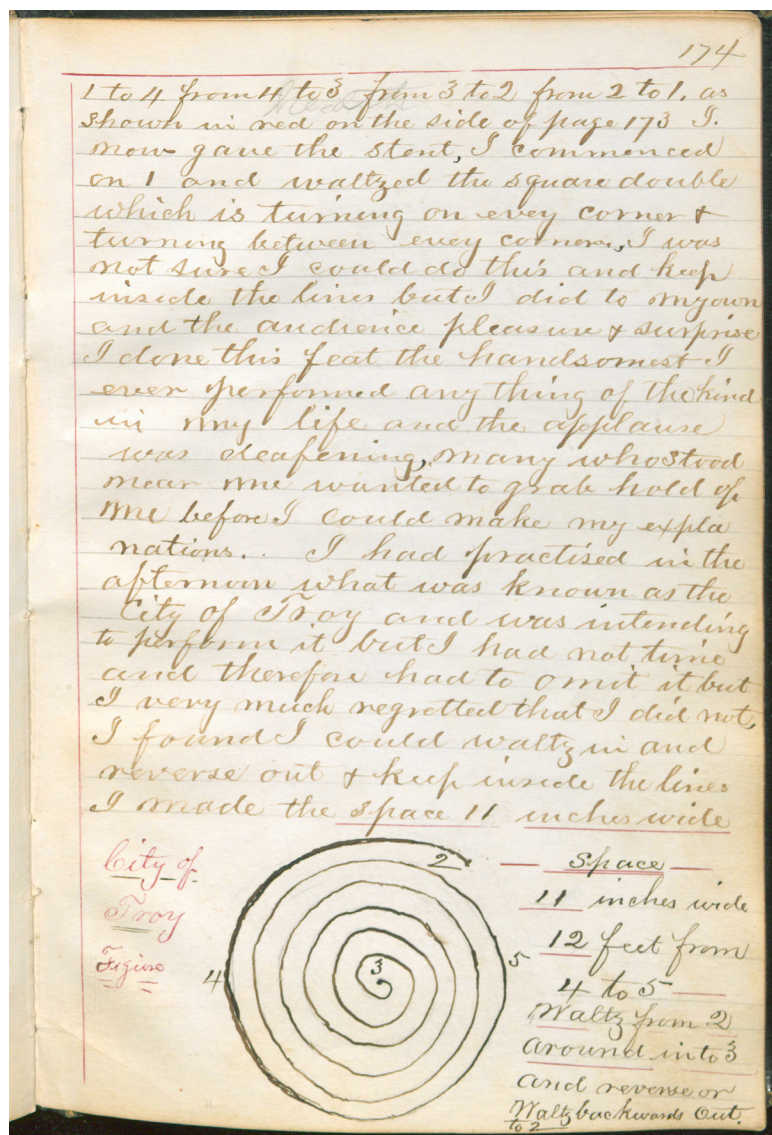 174
1 to 4 from 4 to 3 from 3 to 2 from 2 to 1. as
shown in red on the side of page 173 I.
now gave the stent, I commenced
on 1 and waltzed the square double
which is turning on evey corner &
turning between evey corner, I was
not sure I could do this and keep
inside the lines but I did to my own
and the audience pleasure & surprise
I done this feat the handsomest I
ever performed any thing of the kind
in my life and the applause
was deafening, many who stood
near me wanted to grab hold of
me before I could make my expla
nations.. I had practised in the
afternoon what was known as the
City of Troy and was intending
to perform it but I had not time
and therefore had to omit it but
I very much regretted that I did not,
I found I could waltz in and
reverse out & keep inside the lines
I made the space 11 inches wide
City of
Troy
Figure
2
3
4
5
— Space —
11 inches wide
12 feet from
4 to 5 —
Waltz from 2
around in to 3
and reverse or
Waltz backwards out.
to 2